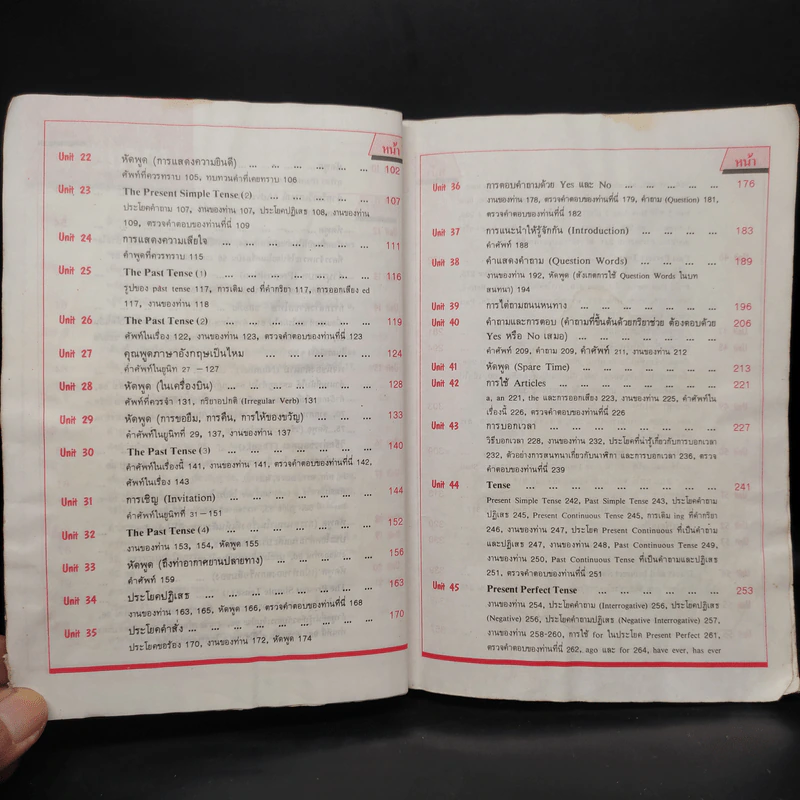 หน้า
Unit 22 หัดพูด (การแสดงความยินดี) ... ... ... ... ... ... 102
ศัพท์ที่ควรทราบ 105, ทบทวนคำที่เคยทราบ 106
Unit 23 The Present Simple Tense (2) ... ... ... ... ... 107
ประโยคคำถาม 107, งานของท่าน 107, ประโยคปฏิเสธ 108, งานของท่าน
109, ตรวจคำตอบของท่านที่นี่ 109
Unit 24 การแสดงความเสียใจ ... ... ... ... ... ... 111
คำพูดที่ควรทราบ 115
Unit 25 The Past Tense (1) ... ... ... ... ... ... 116
รูปของ past tense 117, การเติม ed ที่คำกริยา 117, การออกเสียง ed
117, งานของท่าน 118
Unit 26 The Past Tense (2) ... ... ... ... ... ... 119
ศัพท์ในเรื่อง 122, งานของท่าน 123, ตรวจคำตอบของท่านที่นี่ 123
Unit 27 คุณพูดภาษาอังกฤษเป็นไหม ... ... ... ... ... 124
คำศัพท์ในยูนิท 27 -127
Unit 28 หัดพูด (ในเครื่องบิน) ... ... ... ... ... ... 128
ศัพท์ที่ควรจำ 131, กริยาอปกติ (Irregular Verb) 131
Unit 29 หัดพูด (การขอยืม, การคืน, การให้ของขวัญ) ... ... ... 133
คำศัพท์ในยูนิทที่ 29, 137, งานของท่าน 137
Unit 30 The Past Tense (3) ... ... ... ... ... ... 140
คำศัพท์ในเรื่องนี้ 141, งานของท่าน 141, ตรวจคำตอบของท่านที่นี่ 142,
ศัพท์ในเรื่อง 143
Unit 31 การเชิญ (Invitation) ... ... ... ... ... ... 144
คำศัพท์ในยูนิทที่ 31-151
Unit 32 The Past Tense (4) ... ... ... ... ... ... 152
งานของท่าน 153, 154, หัดพูด 155
Unit 33 หัดพูด (ถึงท่าอากาศยานปลายทาง) ... ... ... ... 156
คำศัพท์ 159
Unit 34 ประโยคปฏิเสธ ... ... ... ... ... ... 163
งานของท่าน 163, 165, หัดพูด 166, ตรวจคำตอบของท่านที่นี่ 168
Unit 35 ประโยคคำสั่ง ... ... ... ... ... ... 170
ประโยคขอร้อง 170, งานของท่าน 172, หัดพูด 174
หน้า
Unit 36 การตอบคำถามด้วย Yes และ No ... ... ... ... ... 176
งานของท่าน 178, ตรวจคำตอบของท่านที่นี่ 179, คำถาม (Question) 181,
ตรวจคำตอบของท่านที่นี่ 182
Unit 37 การแนะนำให้รู้จักกัน (Introduction) ... ... ... ... 183
คำศัพท์ 188
Unit 38 คำแสดงคำถาม (Question Words) ... ... ... ... 189
งานของท่าน 192, หัดพูด (สังเกตการใช้ Question Words ในบท
สนทนา) 194
Unit 39 การไต่ถามถนนหนทาง ... ... ... ... ... 196
Unit 40 คำถามและการตอบ (คำถามที่ขึ้นต้นด้วยกริยาช่วย ต้องตอบด้วย 206
Yes หรือ No เสมอ) ... ... ... ... ... ...
คำศัพท์ 209, คำถาม 209, คำศัพท์ 211, งานของท่าน 212
Unit 41 หัดพูด (Spare Time) ... ... ... ... ... ... 213
Unit 42 การใช้ Articles ... ... ... ... ... ... 221
a, an 221, the และการออกเสียง 223, งานของท่าน 225, คำศัพท์ใน
เรื่องนี้ 226, ตรวจคำตอบของท่านที่นี่ 226
Unit 43 การบอกเวลา ... ... ... ... ... ... 227
วิธีบอกเวลา 228, งานของท่าน 232, ประโยคที่น่ารู้เกี่ยวกับการบอกเวลา
232, ตัวอย่างการสนทนาเกี่ยวกับนาฬิกา และการบอกเวลา 236, ตรวจ
คำตอบของท่านที่นี่ 239
Unit 44 Tense ... ... ... ... ... ... ... 241
Present Simple Tense 242, Past Simple Tense 243, ประโยคคำถาม
ปฏิเสธ 245, Present Continuous Tense 245, การเติม ing ที่คำกริยา
246, งานของท่าน 247, ประโยค Present Continuous ที่เป็นคำถาม
และปฏิเสธ 247, งานของท่าน 248, Past Continuous Tense 249,
งานของท่าน 250, Past Continuous Tense ที่เป็นคำถามและปฏิเสธ
251, ตรวจคำตอบของท่านที่นี่ 251
Unit 45 Present Perfect Tense ... ... ... ... ... 253
งานของท่าน 254, ประโยคคำถาม (Interrogative) 256, ประโยคปฏิเสธ
(Negative) 256, ประโยคคำถามปฏิเสธ (Negative Interrogative) 257,
งานของท่าน 258-260, การใช้ for ในประโยค Present Perfect 261,
ตรวจคำตอบของท่านที่นี่ 262, ago และ for 264, have ever, has ever